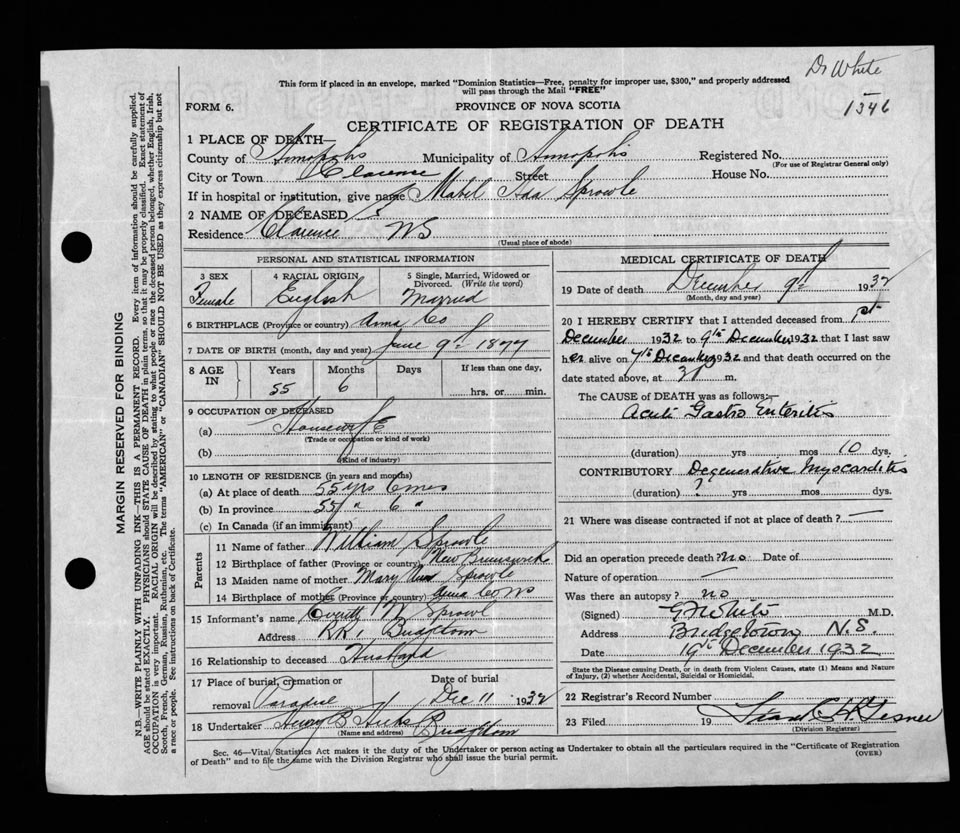 Dr White
1346
This form if placed in an envelope, marked "Dominion Statistics—Free, penalty for improper use, $300," and properly addressed
will pass through the Mail "FREE"
FORM 6.
PROVINCE OF NOVA SCOTIA
CERTIFICATE OF REGISTRATION OF DEATH
1 PLACE OF DEATH—
County of Annapolis Municipality of Annapolis Registered No.
(For use of Registrar General only)
City or Town Clarence Street House No.
If in hospital or institution, give name Mabel Ada Sprowle
2 NAME OF DECEASED
Residence Clarence NS
(Usual place of abode)
PERSONAL AND STATISTICAL INFORMATION
3 SEX 4 RACIAL ORIGIN 5 Single, Married, Widowed or
Divorced. (Write the word)
Female English Married
6 BIRTHPLACE (Province or country) Anna Co
7 DATE OF BIRTH (month, day and year) June 9th 1877
8 AGE IN Years Months Days If less than one day,
55 6 hrs. or min.
9 OCCUPATION OF DECEASED
(a) Housewife
(Trade or occupation or kind of work)
(b)
(Kind of industry)
10 LENGTH OF RESIDENCE (in years and months)
(a) At place of death 55 yrs 6 mos
(b) In province 55 " 6 "
(c) In Canada (if an immigrant)
Parents
11 Name of father William Sprowle
12 Birthplace of father (Province or country) New Brunswick
13 Maiden name of mother Mary Ann Sprowle
14 Birthplace of mother (Province or country) Anna Co NS
15 Informant's name W Sprowl
Address RR 1 Bridgetown
16 Relationship to deceased Husband
17 Place of burial, cremation or Date of burial
removal Paradise Dec 11 1932
18 Undertaker Henry B Hicks Bridgetown
(Name and address)
MEDICAL CERTIFICATE OF DEATH
19 Date of death December 9th 1932
(Month, day and year)
20 I HEREBY CERTIFY that I attended deceased from 1st
December 1932 to 9th December 1932 that I last saw
her alive on 7th December 1932 and that death occurred on the
date stated above, at 3 p m.
The CAUSE of DEATH was as follows:—
Acute Gastro Enteritis
(duration) yrs mos 10 dys.
CONTRIBUTORY Degenerative Myocarditis
(duration) ? yrs mos dys.
21 Where was disease contracted if not at place of death? —
Did an operation precede death? no Date of
Nature of operation —
Was there an autopsy? no
(Signed) White M.D.
Address Bridgetown N.S.
Date 19th December 1932
State the Disease causing Death, or in death from Violent Causes, state (1) Means and Nature
of Injury, (2) whether Accidental, Suicidal or Homicidal.
22 Registrar's Record Number
23 Filed 19 Gesner
(Division Registrar)
Sec. 46—Vital Statistics Act makes it the duty of the Undertaker or person acting as Undertaker to obtain all the particulars required in the "Certificate of Registration
of Death" and to file the same with the Division Registrar who shall issue the burial permit.
(OVER)
MARGIN RESERVED FOR BINDING
N.B.—WRITE PLAINLY WITH UNFADING INK—THIS IS A PERMANENT RECORD. Every item of information should be carefully supplied.
AGE should be stated EXACTLY. PHYSICIANS should STATE CAUSE OF DEATH in plain terms, so that it may be properly classified. Exact statement of
OCCUPATION is very important. RACIAL ORIGIN will be described by stating to what people or race the deceased person belonged, whether English, Irish,
Scotch, French, German, Russian, Ruthenian, etc. The terms "AMERICAN" or "CANADIAN" SHOULD NOT BE USED as they express citizenship but not
a race or people. See instructions on back of Certificate.